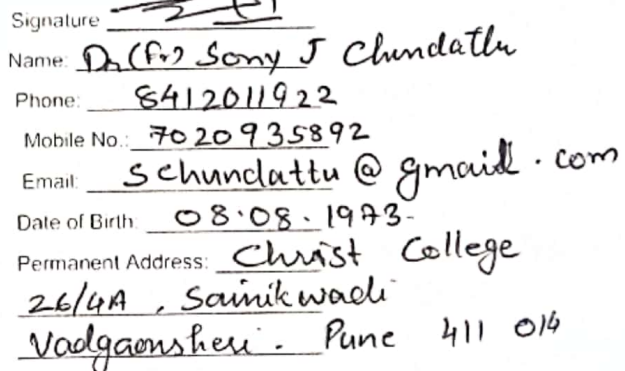 Signature
Name: Dr (Fr) Sony J Chundattu
Phone: 8412011922
Mobile No.: 7020935892
Email: schundattu@gmail.com
Date of Birth: 08.08.1973
Permanent Address: Christ College
26/4A, Sainikwadi
Vadgaonsheri. Pune 411 014